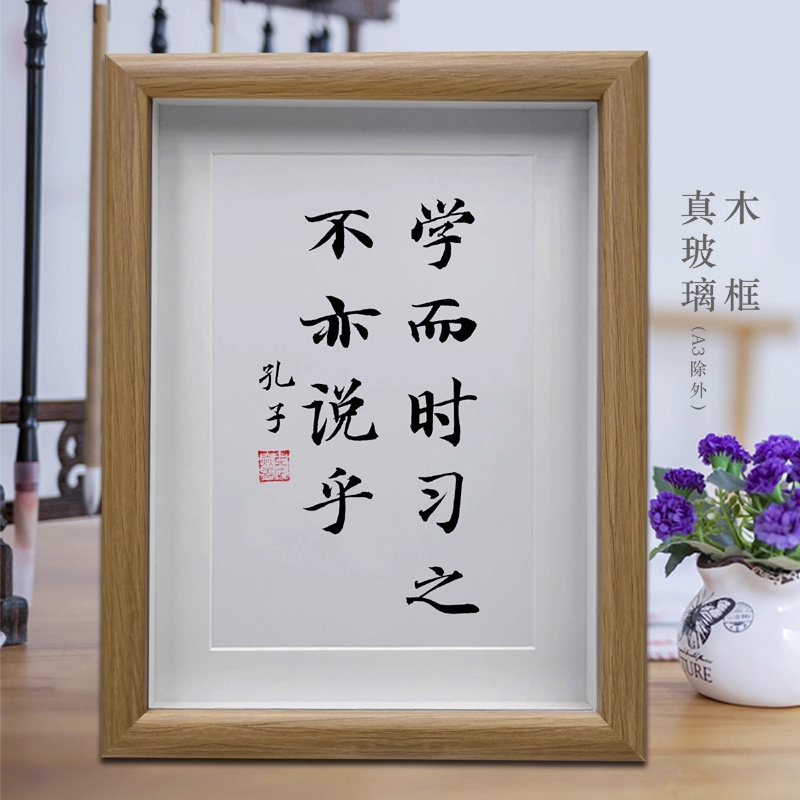 学而时习之
不亦说乎
孔子
木框
真玻璃(A3除外)
TURE